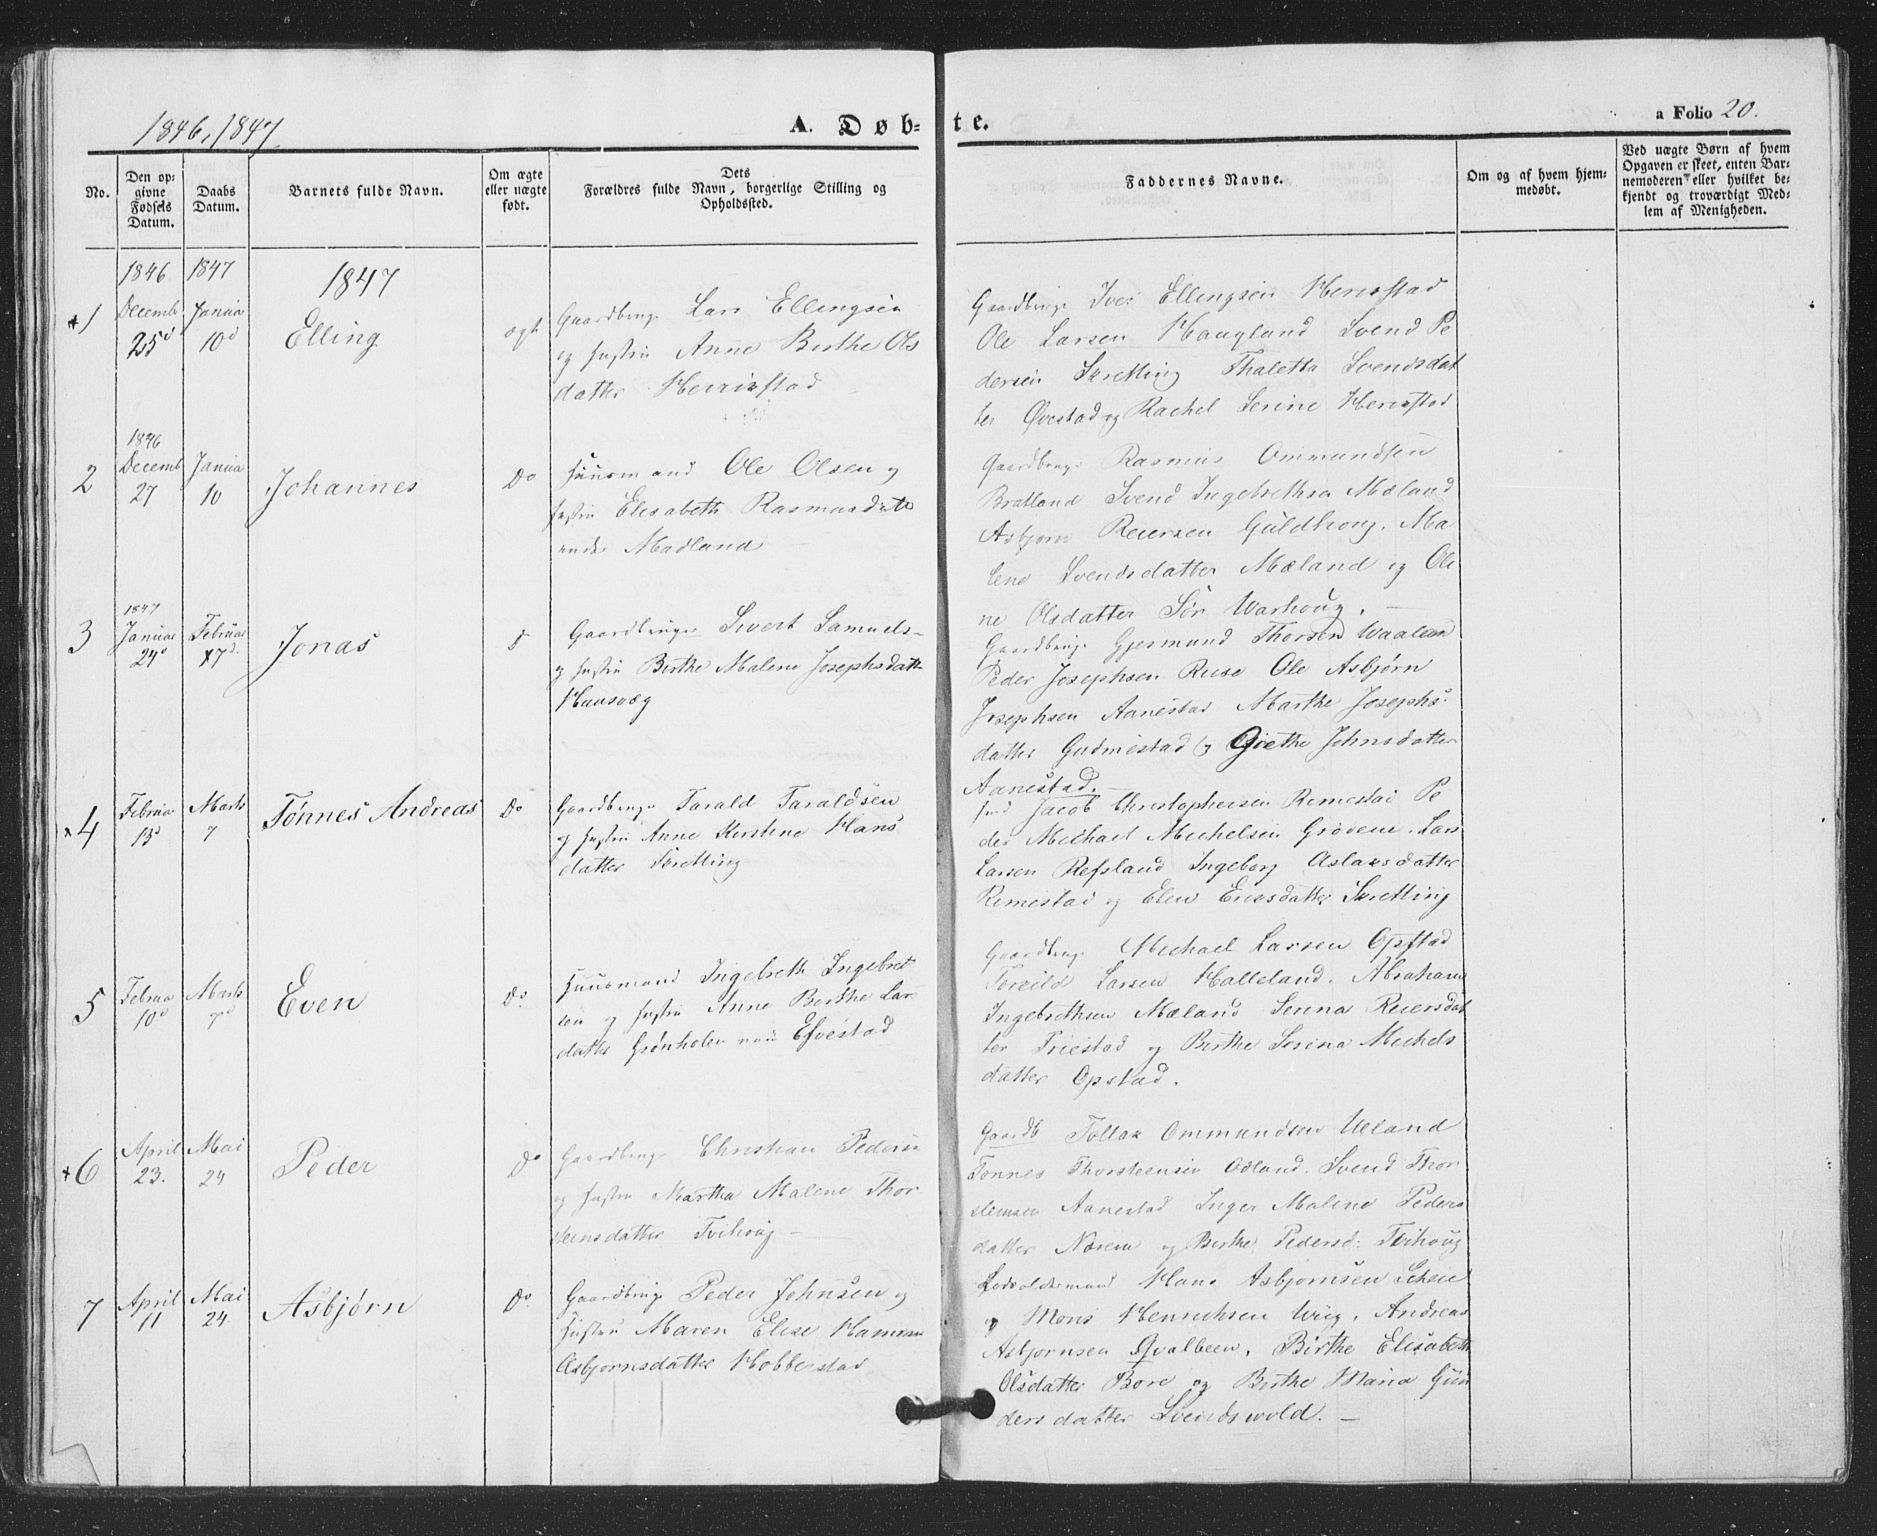 1846, 1847
A. Døb-
te.
a Folio 20.
No.
Den op-
givne
Fødsels
Datum.
Daabs
Datum.
Barnets fulde Navn.
Om ægte
eller uægte
født.
Dets
Forældres fulde Navn, borgerlige Stilling og
Opholdssted.
Faddernes Navne.
Om og af hvem hjem-
medøbt.
Ved uægte Børn af hvem
Opgaven er skeet, enten Bar-
nemoderen eller hvilket be-
kjendt og troværdigt Med-
lem af Menigheden.
1846
1847
1847
1
Decemb
25d
Janua
10d
Elling
ægt
Gaardbruge Lars Ellingsen
og Hustru Anne Birthe Ols
datter Herrisstad
Gaardbruge Iver Ellingsen Herisstad
Ole Larsen Haugland Svend Pe
dersen Skretting Thaletta Svendsdat
ter Øvestad og Rachel Serine Herisstad
2
1846
Decemb
27
Janua
10
Johannes
Do
Huusmand Ole Olsen og
Hustru Elisabeth Rasmusdatt
under Madland
Gaardbruge Rasmus Ommundsen
Bratland Svend Ingebrethsen Mæland
Asbjørn Reiersen Guldhoug. Ma
lene Svendsdatter Mæland og Ole
ne Olsdatter Sør Warhoug. —
3
1847
Januar
24d
Februar
17d.
Jonas
Gaardbruge Sivert Samuels-
og Hustru Birthe Malene Josephsdatt
Haasvæg
Gaardbruge Gjermund Thorsen Waaland
Peder Josephsen Ruse Ole Asbjørn
Josephsen Aanestad Marthe Josephs:
datter Gudmestad og Grethe Johnsdatter
Aanestad.
4
Februa
13d
Marts
7
Tønnes Andreas
Do
Gaardbruge Tarald Taraldsen
og Hustru Anne Kirstine Hans
datter Skretting
Jacob Christophersen Rimestad Pe
der Michael Michelsen Grødem. Lars
Larsen Refsland Ingeborg Aslaksdatter
Rimestad og Elen Ericsdatter Skretting
5
Februa
10d
Marts
7d
Even
Do
Huusmand Ingebreth Ingebret
sen og Hustru Anne Berthe Lar
datter Grønholen
Gaardbruge Michael Larsen Opstad
Toreild Larsen Halleland. Abraham
Ingebrethsen Mæland Senna Reiersdat
ter Friestad og Birthe Serina Michels
datter Opstad.
6
April
23.
Mai
24
Peder
Do
Gaardbruge Christian Pedersen
og Hustru Martha Malene Thor
steinsdatter Tvihoug —
Gaardb Tollak Ommundsen Ueland
Tønnes Thorsteensen Odland. Svend Thor
steinsen Aanestad Inger Malene Peders
datter Nærem og Birthe Pedersd: Tvihoug
7
April
11
Mai
24
Asbjørn
Do
Gaardbruge Peder Johnsen og
Hustru Maren Elise Hanna
Asbjornsdatter Hobberstad
Hans Asbjornsen Scheie
og Mons Henrichsen Wiig, Andreas
Asbjornsen Qvalbeen, Birthe Elisabeth
Olsdatter Bore og Birthe Maria Gun
ders datter Svendswold. —